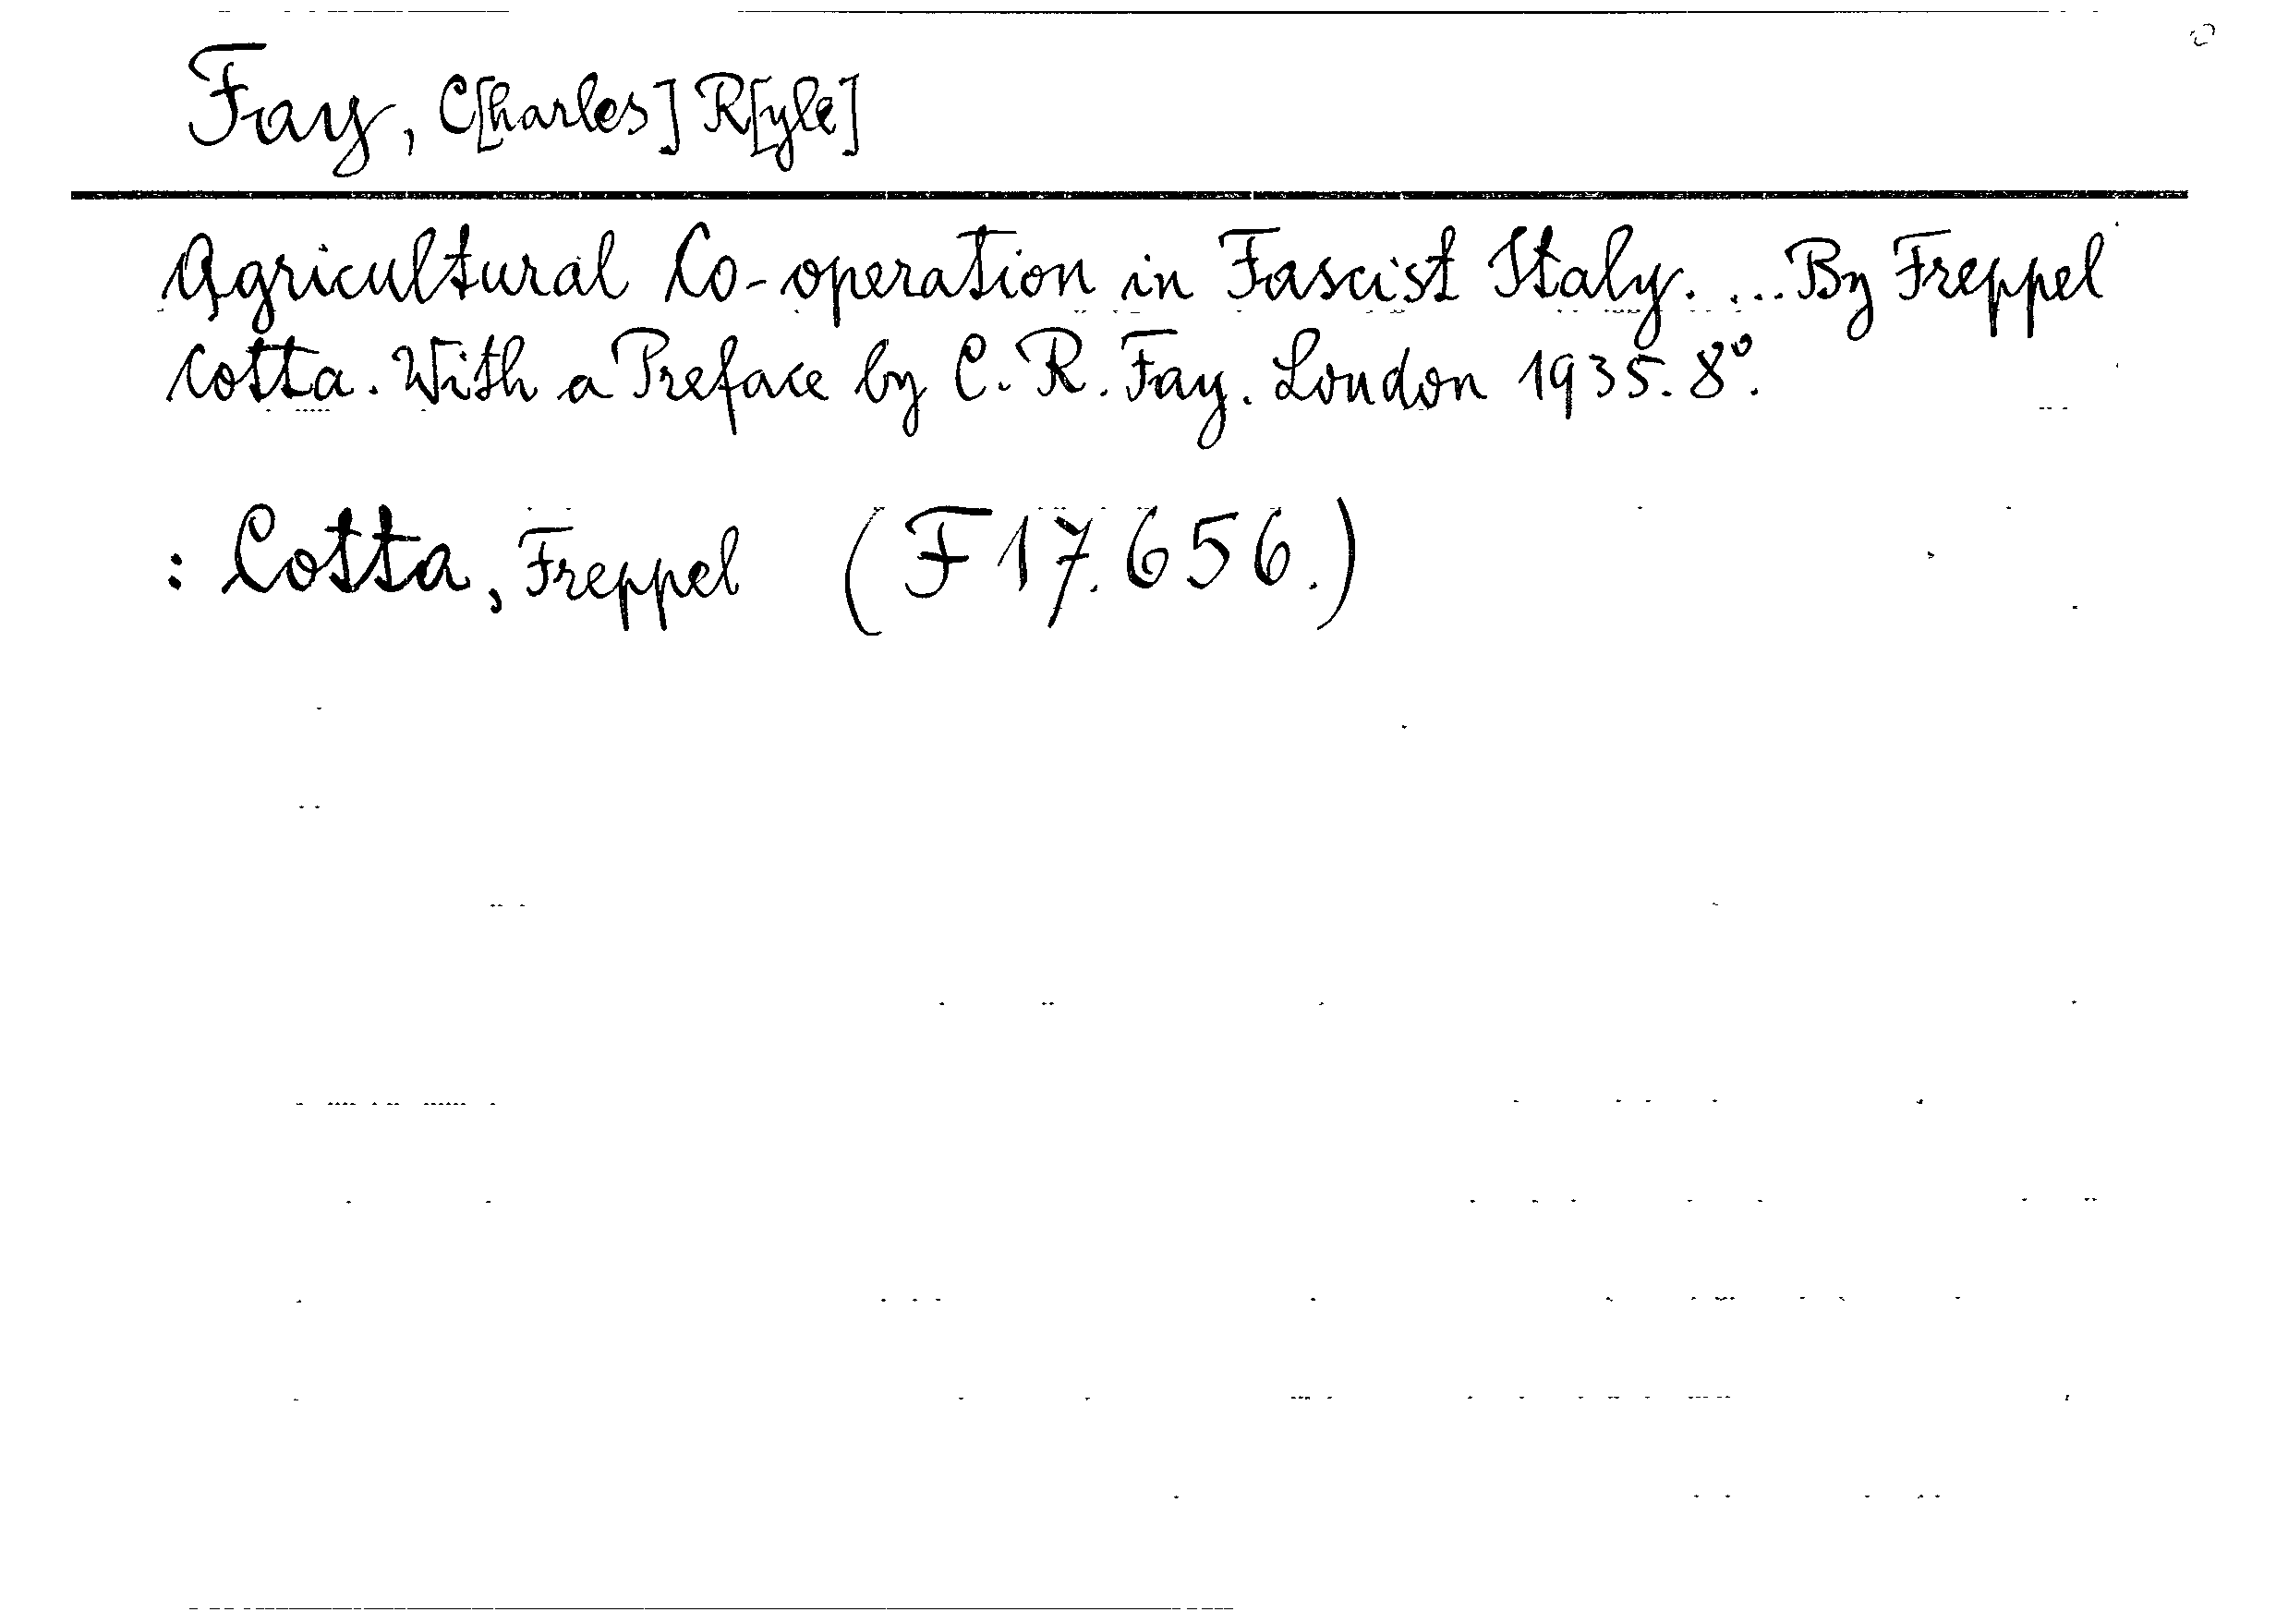 Fay, C[harles] R[yle]
Agricultural Co-operation in Fascist Italy. ... By Freppel
Cotta. With a Preface by C. R. Fay. London 1935. 8°.
: Cotta, Freppel (F 17.656.)